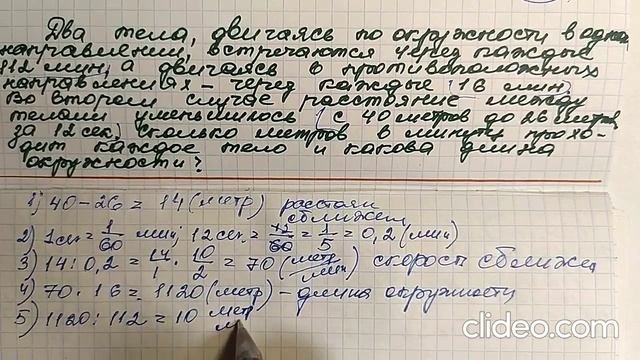 Два тела, двигаясь по окружности в одном
направлении, встречаются через каждые
112 мин, а двигаясь в противоположных
направлениях - через каждые 16 мин.
Во втором случае расстояние между
телами уменьшилось с 40 метров до 26 метров
за 12 сек. Сколько метров в минуту прохо-
дит каждое тело и какова длина
окружности?
1) 40 - 26 = 14 (метр) расстоян
сближен
2) 1 сек = 1/60 мин; 12 сек. = 12/60 = 1/5 = 0,2 (мин)
3) 14 : 0,2 = 14/1 · 10/2 = 70 (метр/мин) скорость сближен
4) 70 · 16 = 1120 (метр) - длина окружности
5) 1120 : 112 = 10 мет
м
clideo.com